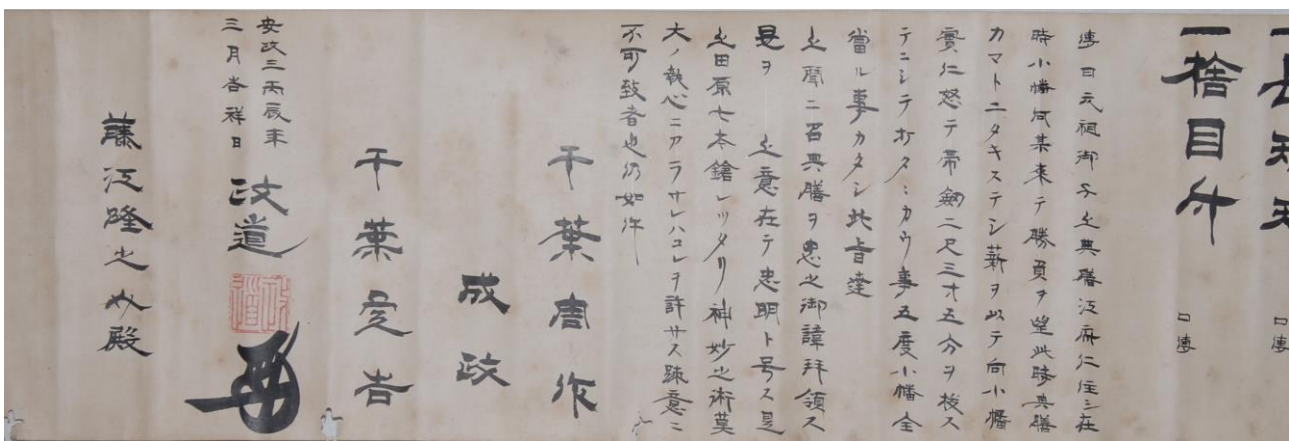 口傳
一捨目付 口傳
傳曰元祖御子上典膳江府仁住シ在
時小幡何某来テ勝負ヲ望此時典膳
カマトニタキステシ薪ヲ以テ向小幡
實仁怒テ帯劔二尺三寸五分ヲ抜ス
テニシテ打タヽカウ事五度小幡全
當ル事カタシ此旨達
上聞ニ召典膳ヲ忠之御諱拜領ス
是ヲ 上意在テ忠明ト号ス是
上田原七本鎗レツタリ神妙之術莫
大ノ執心ニアラサレハコレヲ許サス踈意ニ
不可致者也仍如件
千葉周作
成政
千葉定吉
安政三丙辰年
三月吉祥日
政道
藤江隆之殿